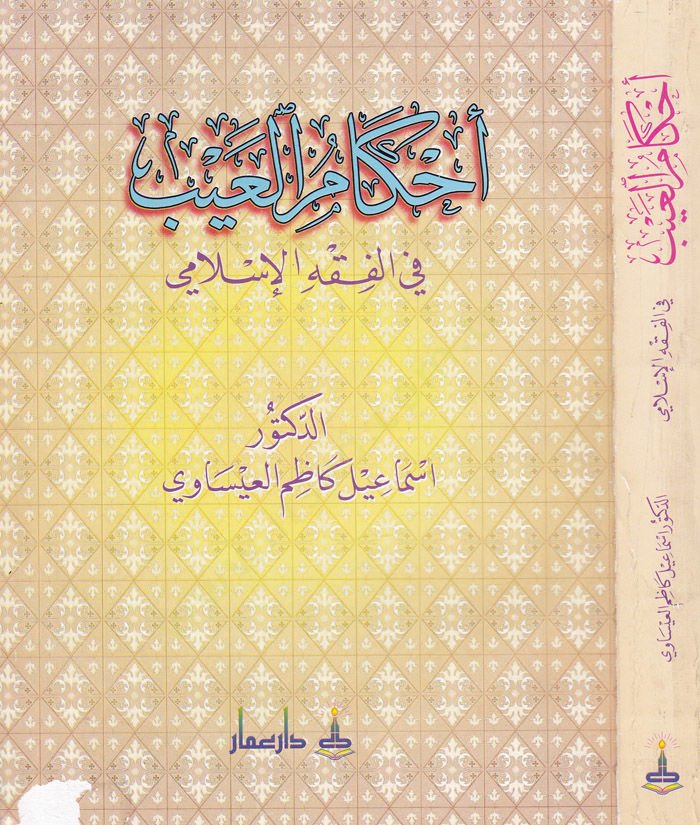 أحكام العيب
في الفقه الإسلامي
الدكتور
اسماعيل كاظم العيساوي
دار عمار
أحكام العيب
في الفقه الإسلامي
الدكتور اسماعيل كاظم العيساوي